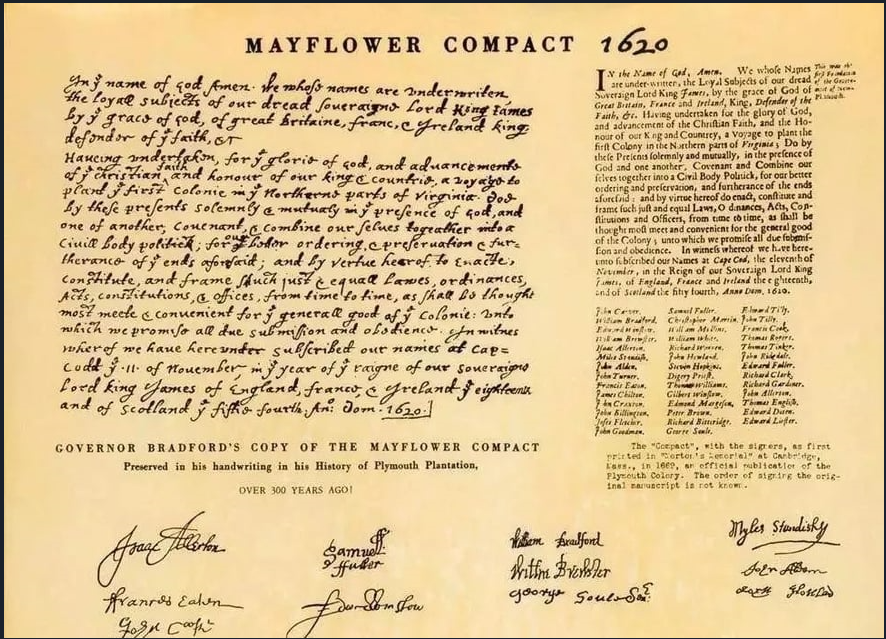 MAYFLOWER COMPACT 1620
In yͤ name of god Amen. We whose names are underwriten,
the loyall subjects of our dread soveraigne Lord King James
by yͤ grace of god, of great Britaine, franc, & Ireland king,
defender of yͤ faith, &c
Haveing undertaken, for yͤ glorie of god, and advancemente
of yͤ christian faith and honour of our king & countrie, a voyage to
plant yͤ first Colonie in yͤ Northerne parts of Virginia. Doe
by these presents solemnly & mutualy in yͤ presence of god, and
one of another, covenant, & combine our selves togeather into a
Civill body politick; for our better ordering, & preservation & fur=
therance of yͤ ends aforesaid; and by vertue hearof, to Enacte,
Constitute, and frame such just & equall Lawes, ordinances,
Acts, constitutions, & offices, from time to time, as shall be thought
most meete & convenient for yͤ generall good of yͤ Colonie: Unto
which we promise all due submission and obedience. In witnes
wherof we have here under subscribed our names at Cap=
Codd yͤ .11. of November in yͤ year of yͤ raigne of our soveraigne
Lord king James of England, france, & Ireland yͤ eighteenth
and of Scotland yͤ fiftie fourth. An: Dom. 1620.
GOVERNOR BRADFORD'S COPY OF THE MAYFLOWER COMPACT
Preserved in his handwriting in his History of Plymouth Plantation,
OVER 300 YEARS AGO!
IN the Name of God, Amen. We whose Names
are under-written, the Loyal Subjects of our dread
Sovereign Lord King James, by the grace of God of
Great Britain, France and Ireland, King, Defender of the
Faith, &c. Having undertaken for the glory of God,
and advancement of the Christian Faith, and the Ho-
nour of our King and Countrey, a Voyage to plant the
first Colony in the Northern parts of Virginia; Do by
these Presents solemnly and mutually, in the presence of
God and one another, Covenant and Combine our
selves together into a Civil Body Politick, for our better
ordering and preservation, and furtherance of the ends
aforesaid: and by virtue hereof do enact, constitute and
frame such just and equal Laws, Ordinances, Acts, Con-
stitutions and Officers, from time to time, as shall be
thought most meet and convenient for the general good
of the Colony; unto which we promise all due submis-
sion and obedience. In witness whereof we have here-
unto subscribed our Names at Cape Cod, the eleventh of
November, in the Reign of our Sovereign Lord King
James, of England, France and Ireland the eighteenth,
and of Scotland the fifty fourth, Anno Dom. 1620.
This was the
first Foundation
of the Govern-
ment of New-
Plimouth.
John Carver. Samuel Fuller. Edward Tilly.
William Bradford. Christopher Martin. John Tilly.
Edward Winslow. William Mullins. Francis Cook.
William Brewster. William White. Thomas Rogers.
Isaac Allerton. Richard Warren. Thomas Tinker.
Miles Standish. John Howland. John Ridgdale.
John Alden. Steven Hopkins. Edward Fuller.
John Turner. Digery Priest. Richard Clark.
Francis Eaton. Thomas Williams. Richard Gardiner.
James Chilton. Gilbert Winslow. John Allerton.
John Craxton. Edmund Margeson. Thomas English.
John Billington. Peter Brown. Edward Doten.
Joses Fletcher. Richard Bitteridge. Edward Liester.
John Goodman. George Soule.
The "Compact", with the signers, as first
printed in "Morton's Memorial" at Cambridge,
Mass., in 1669, an official publication of the
Plymouth Colony. The order of signing the orig-
inal manuscript is not known.
Isaac Allerton
Frances Eaten
John Cooke
Samuell
ffuller
Edw Winslow
William Bradford
Willm Brewster
George Soule Senr.
Myles Standish
John Alden